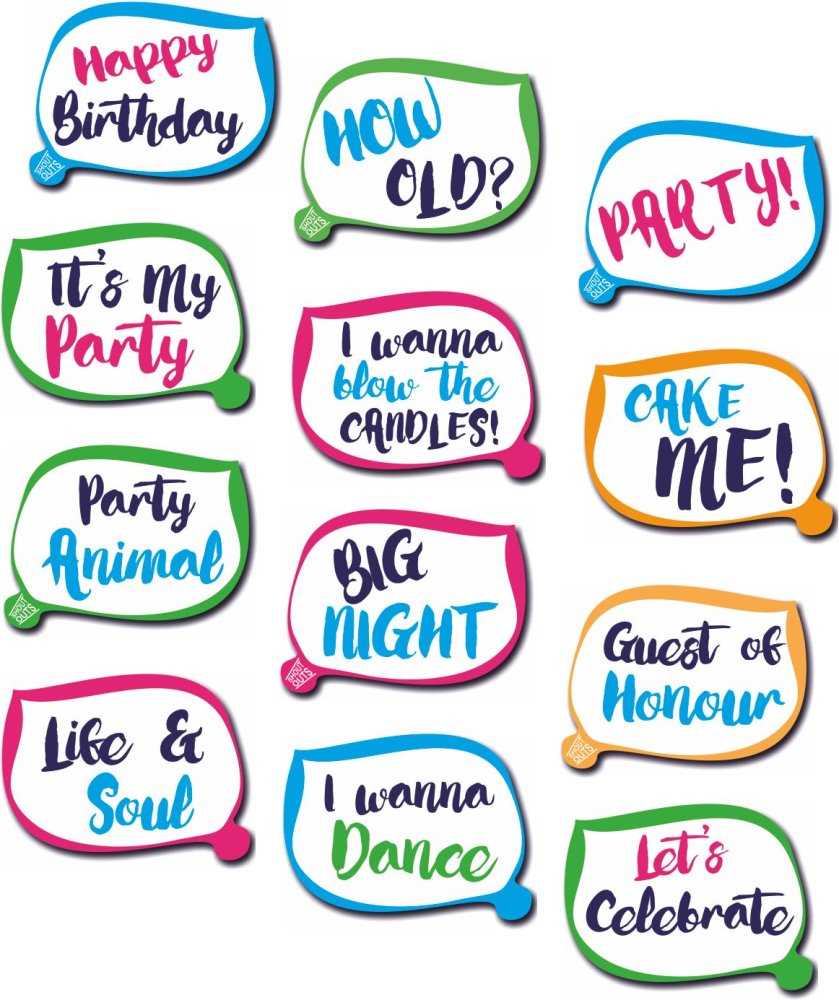 Happy
Birthday
SHOUT
OUTS
HOW
OLD?
SHOUT
OUTS
PARTY!
SHOUT
OUTS
It's My
Party
I wanna
blow the
CANDLES!
CAKE
ME!
Party
Animal
SHOUT
OUTS
BIG
NIGHT
SHOUT
OUTS
Guest of
Honour
SHOUT
OUTS
Life &
Soul
I wanna
Dance
Let's
Celebrate